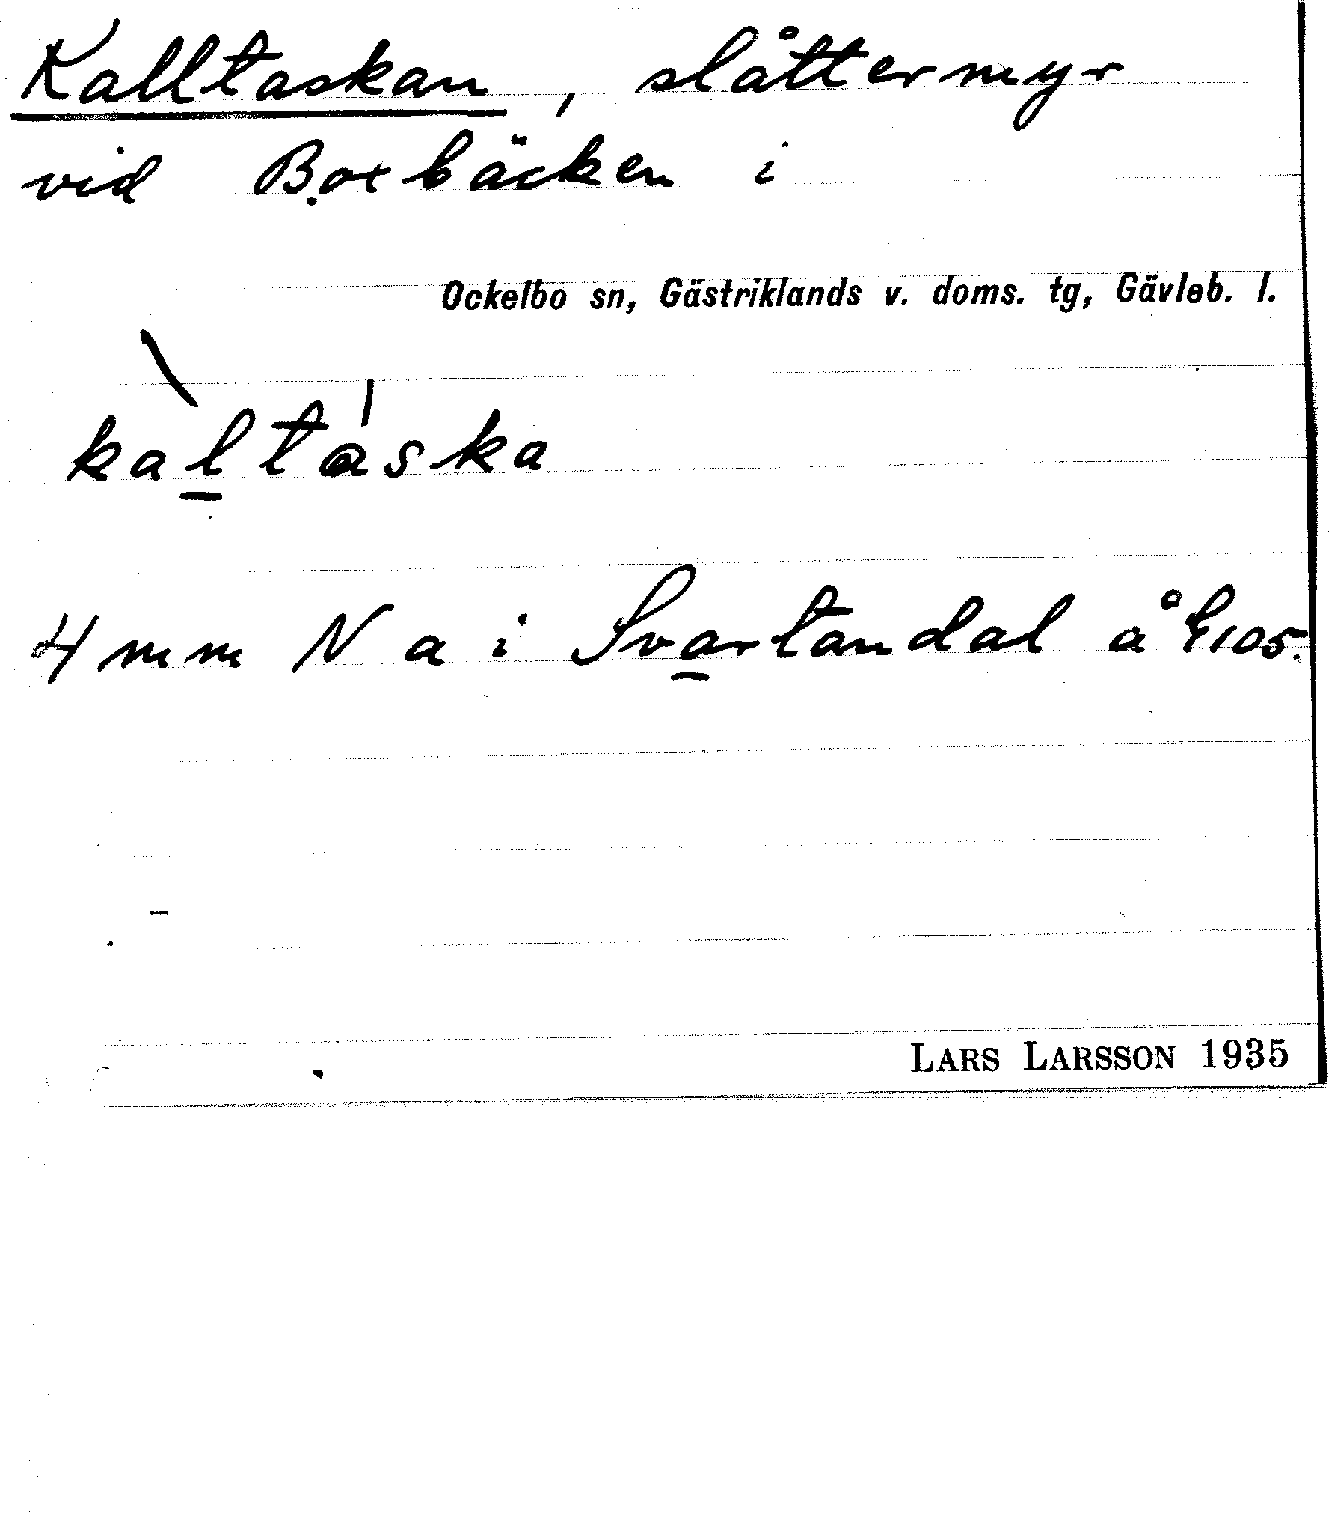 Kalltaskan, slåttermyr
vid Boxbäcken i
Ockelbo sn, Gästriklands v. doms. tg, Gävleb. l.
kàltáska
4 mm N a i Svartandal å
LARS LARSSON 1935